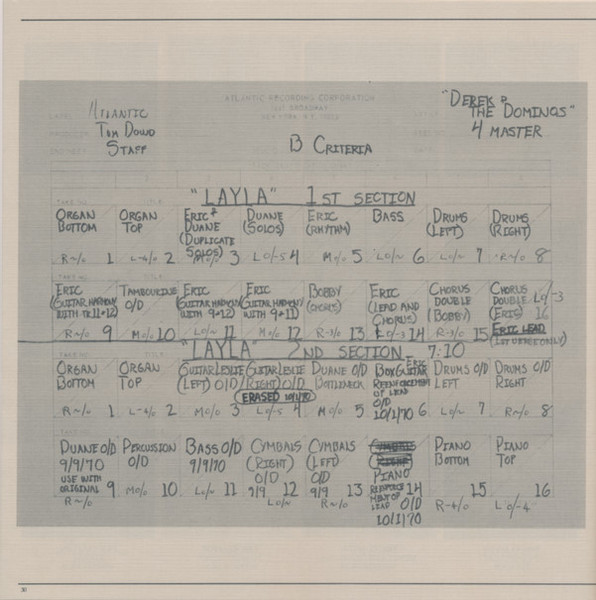 ATLANTIC RECORDING CORPORATION
1841 BROADWAY
NEW YORK, N.Y. 10023
ATLANTIC
TOM DOWD
STAFF
13 CRITERIA
"DEREK &
THE DOMINOS"
4 MASTER
"LAYLA" 1ST SECTION
ORGAN BOTTOM R~/o 1
ORGAN TOP L-4/o 2
ERIC & DUANE (DUPLICATE SOLOS) Mo/o 3
DUANE (SOLOS) Lo/-5 4
ERIC (RHYTHM) Mo/o 5
BASS Lo/~ 6
DRUMS (LEFT) Lo/~ 7
DRUMS (RIGHT) R~/o 8
ERIC (GUITAR HARMONY WITH 11+12) R~/o 9
TAMBOURINE O/D Mo/o 10
ERIC (GUITAR HARMONY WITH 9+12) Lo/~ 11
ERIC (GUITAR HARMONY WITH 9+11) Mo/o 12
BOBBY (CHORUS) R-3/o 13
ERIC (LEAD AND CHORUS) Lo/-3 14
CHORUS DOUBLE (BOBBY) R-3/o 15
CHORUS DOUBLE (ERIC) Lo/-3 16 ERIC LEAD (1ST VERSE ONLY)
"LAYLA" 2ND SECTION 7:10
ORGAN BOTTOM R~/o 1
ORGAN TOP L-4/o 2
GUITAR LESLIE (LEFT) O/D Mo/o 3
GUITAR LESLIE (RIGHT) O/D ERASED 10/1/70 Lo/-5 4
DUANE O/D BOTTLENECK Mo/o 5
BOX GUITAR ERIC REENFORCEMENT OF LEAD O/D 10/1/70 6
DRUMS O/D LEFT Lo/~ 7
DRUMS O/D RIGHT R~/o 8
DUANE O/D 9/9/70 USE WITH ORIGINAL R~/o 9
PERCUSSION O/D Mo/o 10
BASS O/D 9/9/70 Lo/~ 11
CYMBALS (RIGHT) O/D 9/9 Lo/~ 12
CYMBALS (LEFT) O/D 9/9 R~/o 13
CYMBALS (RIGHT) PIANO REENFORCEMENT OF LEAD O/D 10/1/70 14
PIANO BOTTOM R-4/o 15
PIANO TOP Lo/-4 16